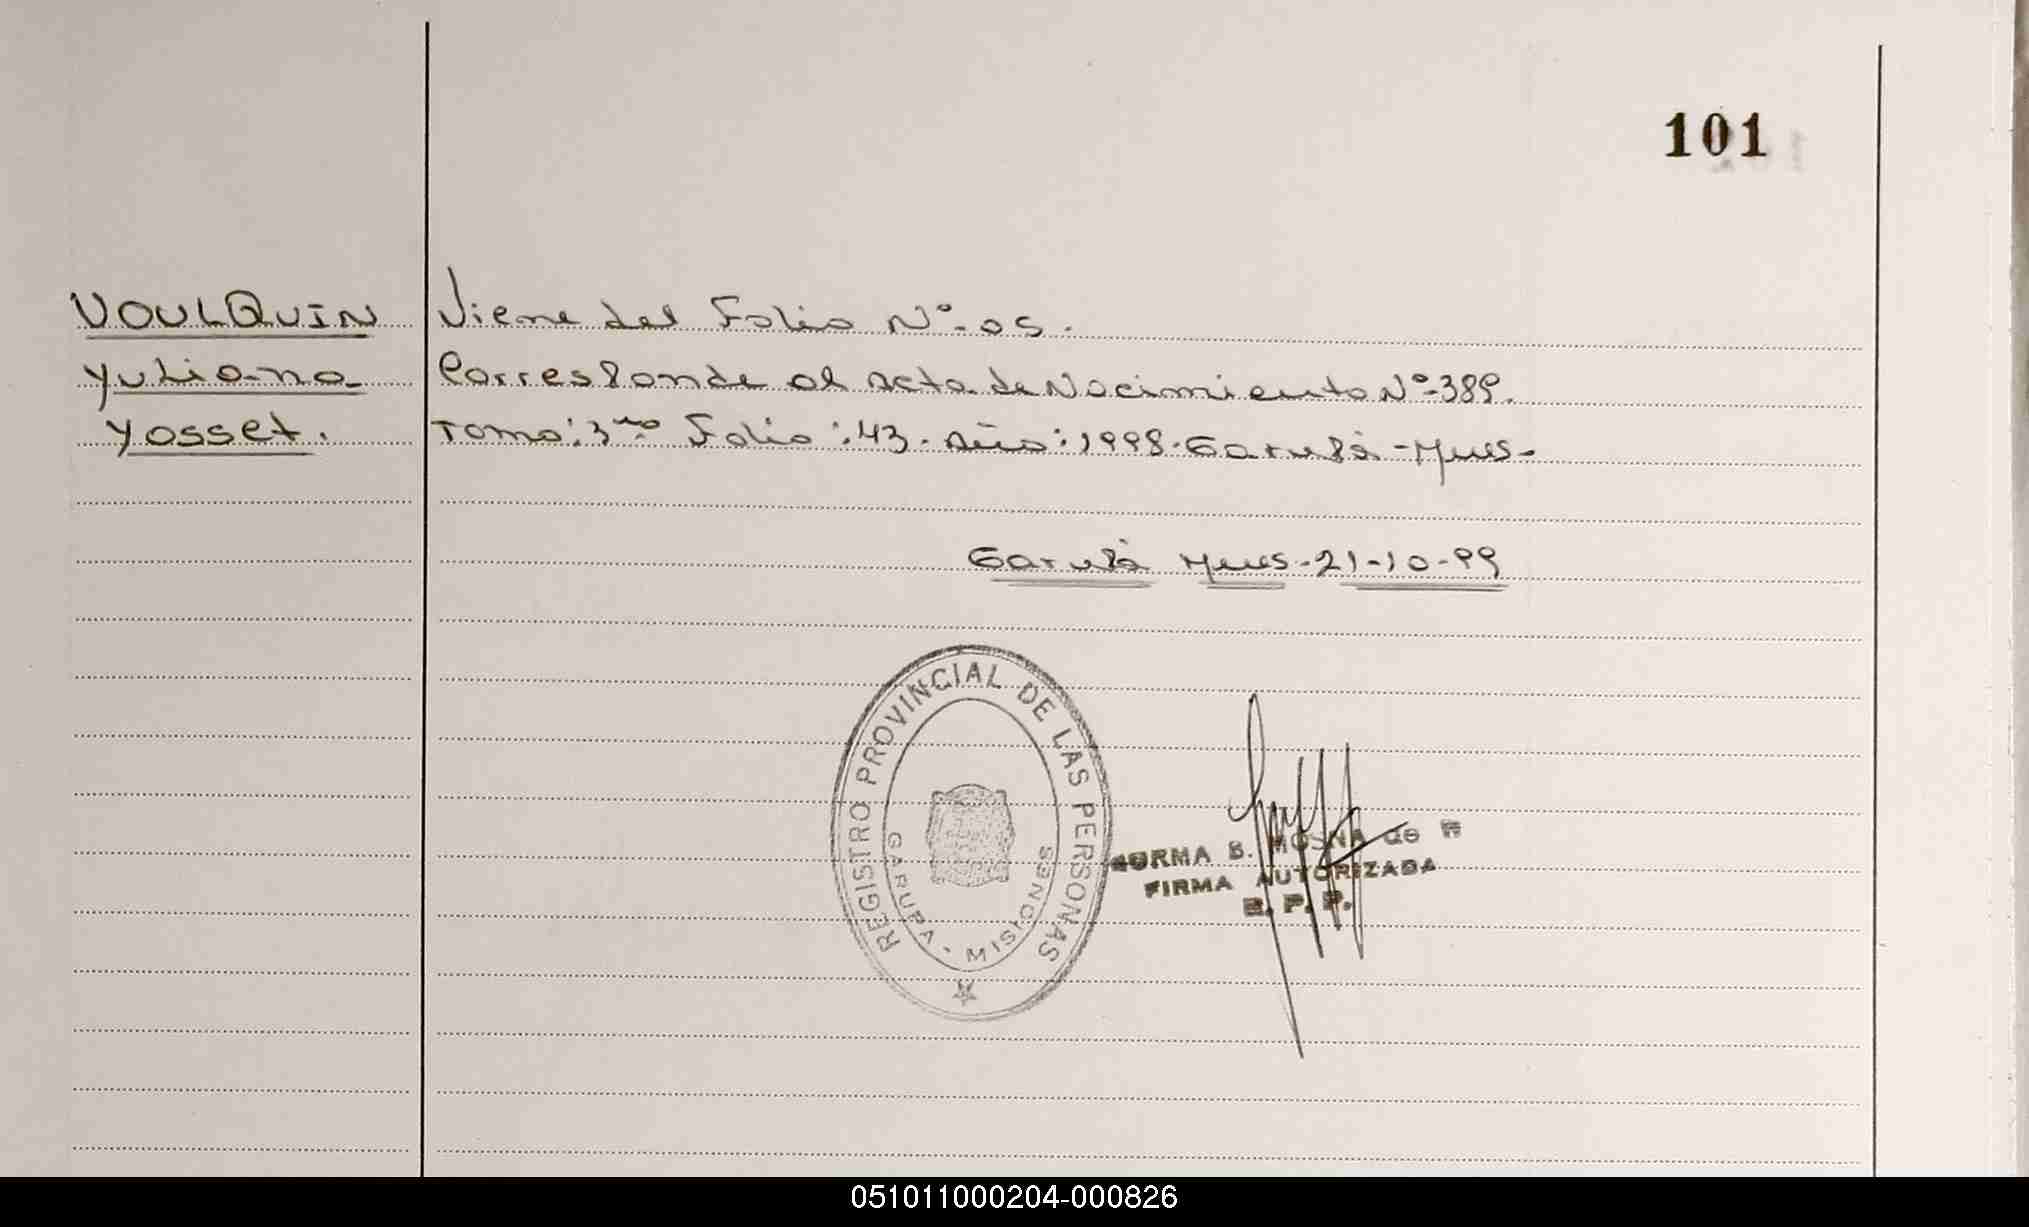 101
VOULQUIN
Yuliana
Yosset.
Viene del Folio Nº-05.
Corresponde al acta de Nacimiento Nº-389.
Tomo: 3ro Folio: 43. Año: 1998. Garupá - Mnes-
Garupá Mnes-21-10-99
REGISTRO PROVINCIAL DE LAS PERSONAS
GARUPA - MISIONES
NORMA B. MOSNA de
FIRMA AUTORIZADA
051011000204-000826